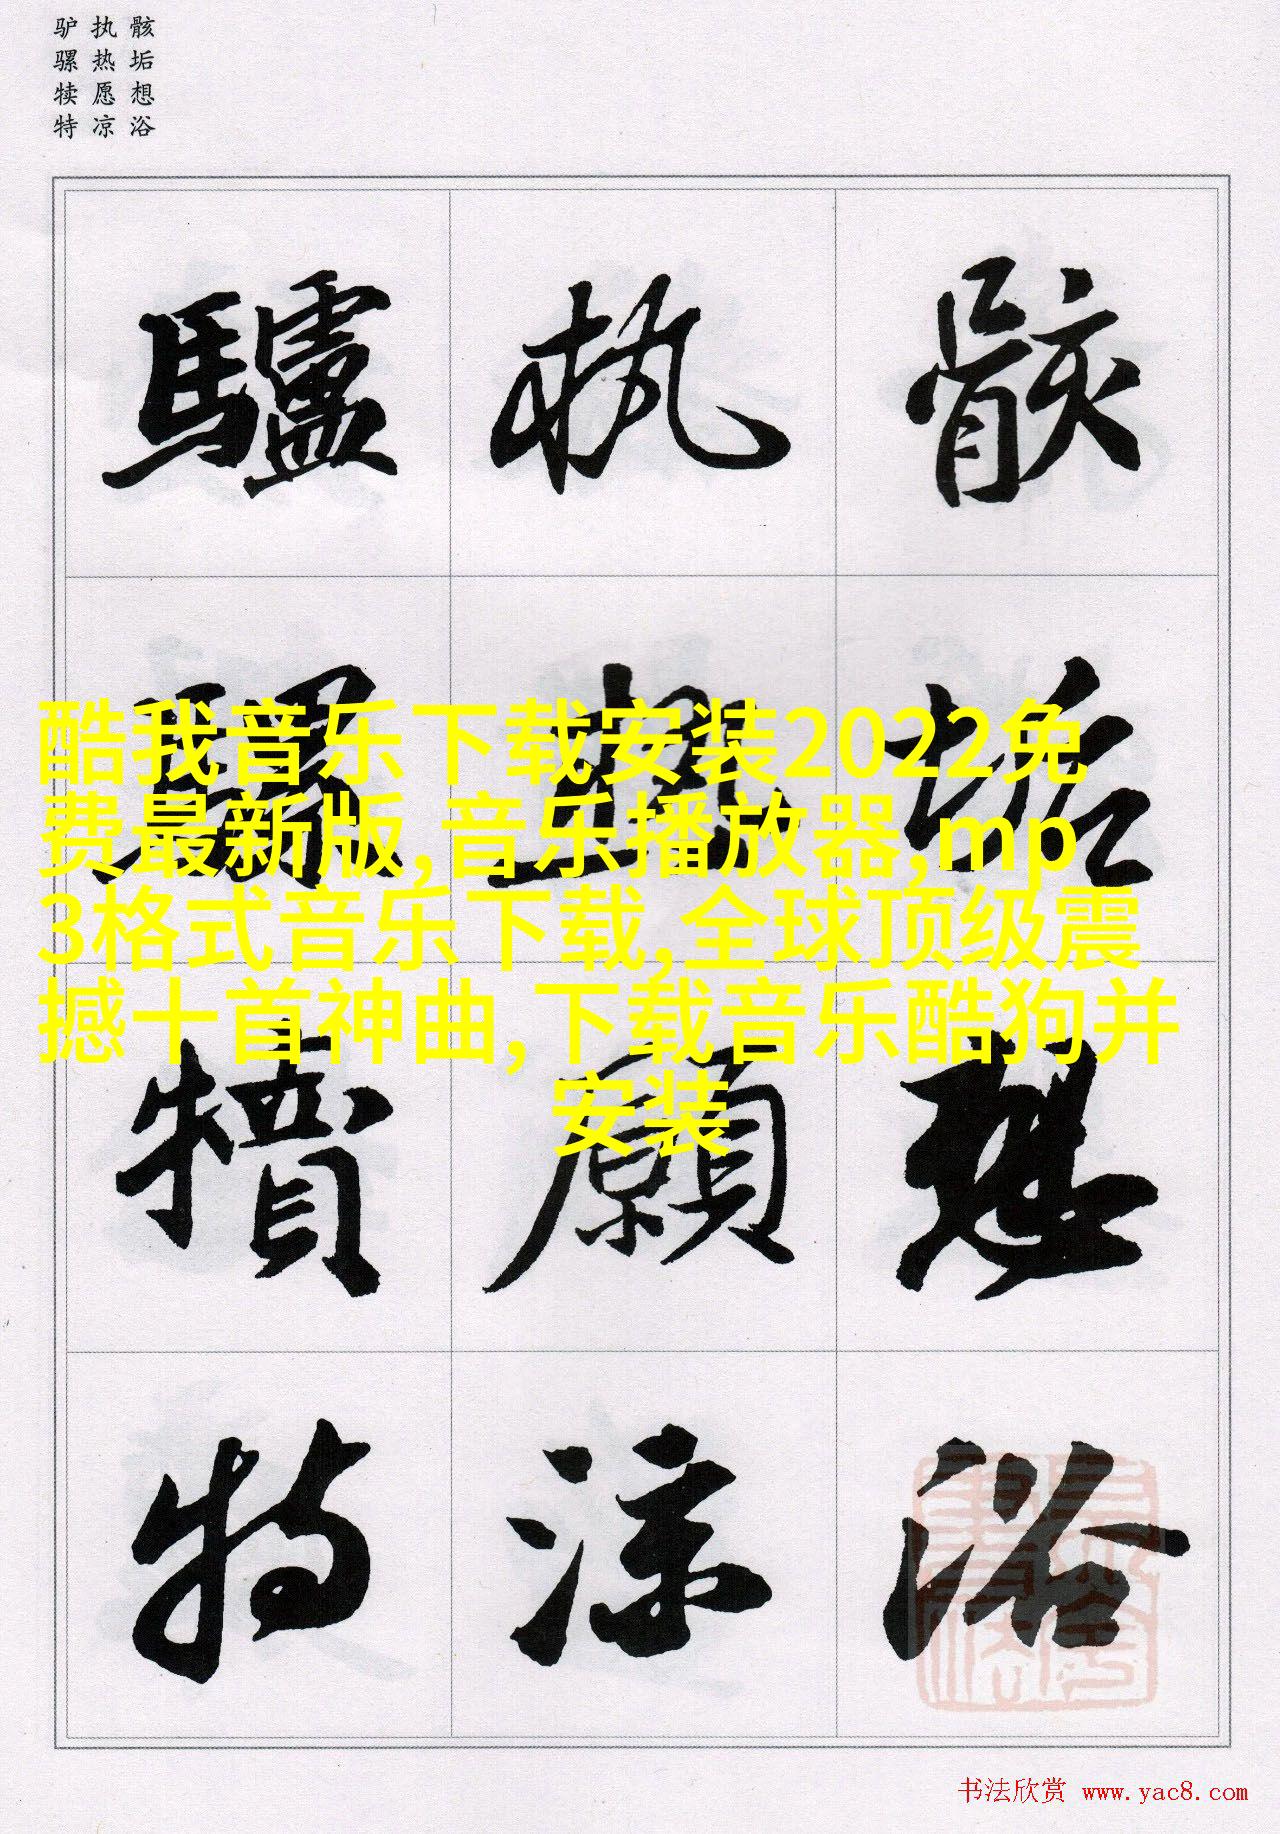 骸垢想浴
执热愿凉
驴骡犊特
骸垢想浴
執熱願涼
驢騾犢特
酷我音乐下载安装2022免
费最新版,音乐播放器,mp
3格式音乐下载,全球顶级震
撼十首神曲,下载音乐酷狗并
安装
书法欣赏 www.yac8.com